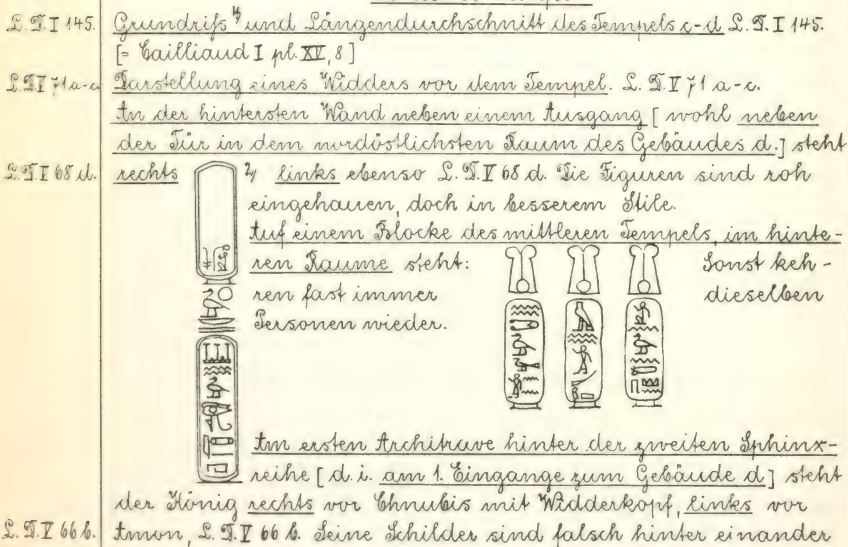 L. D. I 145. Grundriſs ¹⁾ und Längendurchschnitt des Tempels c-d L. D. I 145.
[= Cailliaud I pl. XV, 8]
L. D. V 71 a-c. Darstellung eines Widders vor dem Tempel. L. D. V 71 a-c.
An der hintersten Wand neben einem Ausgang [wohl neben
der Tür in dem nordöstlichsten Raum des Gebäudes d.] steht
L. D. V 68 d. rechts ²⁾ links ebenso L. D. V 68 d. Die Figuren sind roh
eingehauen, doch in besserem Stile.
Auf einem Blocke des mittleren Tempels, im hinte-
ren Raume steht: Sonst keh-
ren fast immer dieselben
Personen wieder.
Am ersten Architrave hinter der zweiten Sphinx-
reihe [d. i. am 1. Eingange zum Gebäude d] steht
der König rechts vor Chnubis mit Widderkopf, links vor
L. D. V 66 b. Amon, L. D. V 66 b. Seine Schilder sind falsch hinter einander